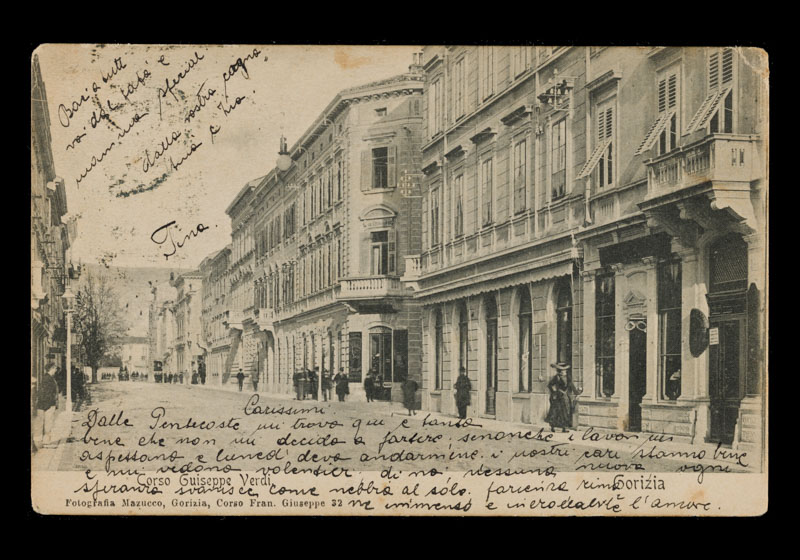 Baci a tutti
voi dal papá e
mamma special
dalla vostra
Tina.
Carissimi
Dalle Pentecoste mi trovo qui e tanto
bene che non mi decido a partire, senonche i lavori mi
aspettano e lunedí devo andarmine. i nostri cari stanno bene
e mi vedono volentier. di no nessuna nuova ogni
speranza svanisce come nebbia al sole.
ne immenso e l'amore.
Corso Guiseppe Verdi.
Gorizia
Fotografia Mazucco, Gorizia, Corso Fran. Giuseppe 32